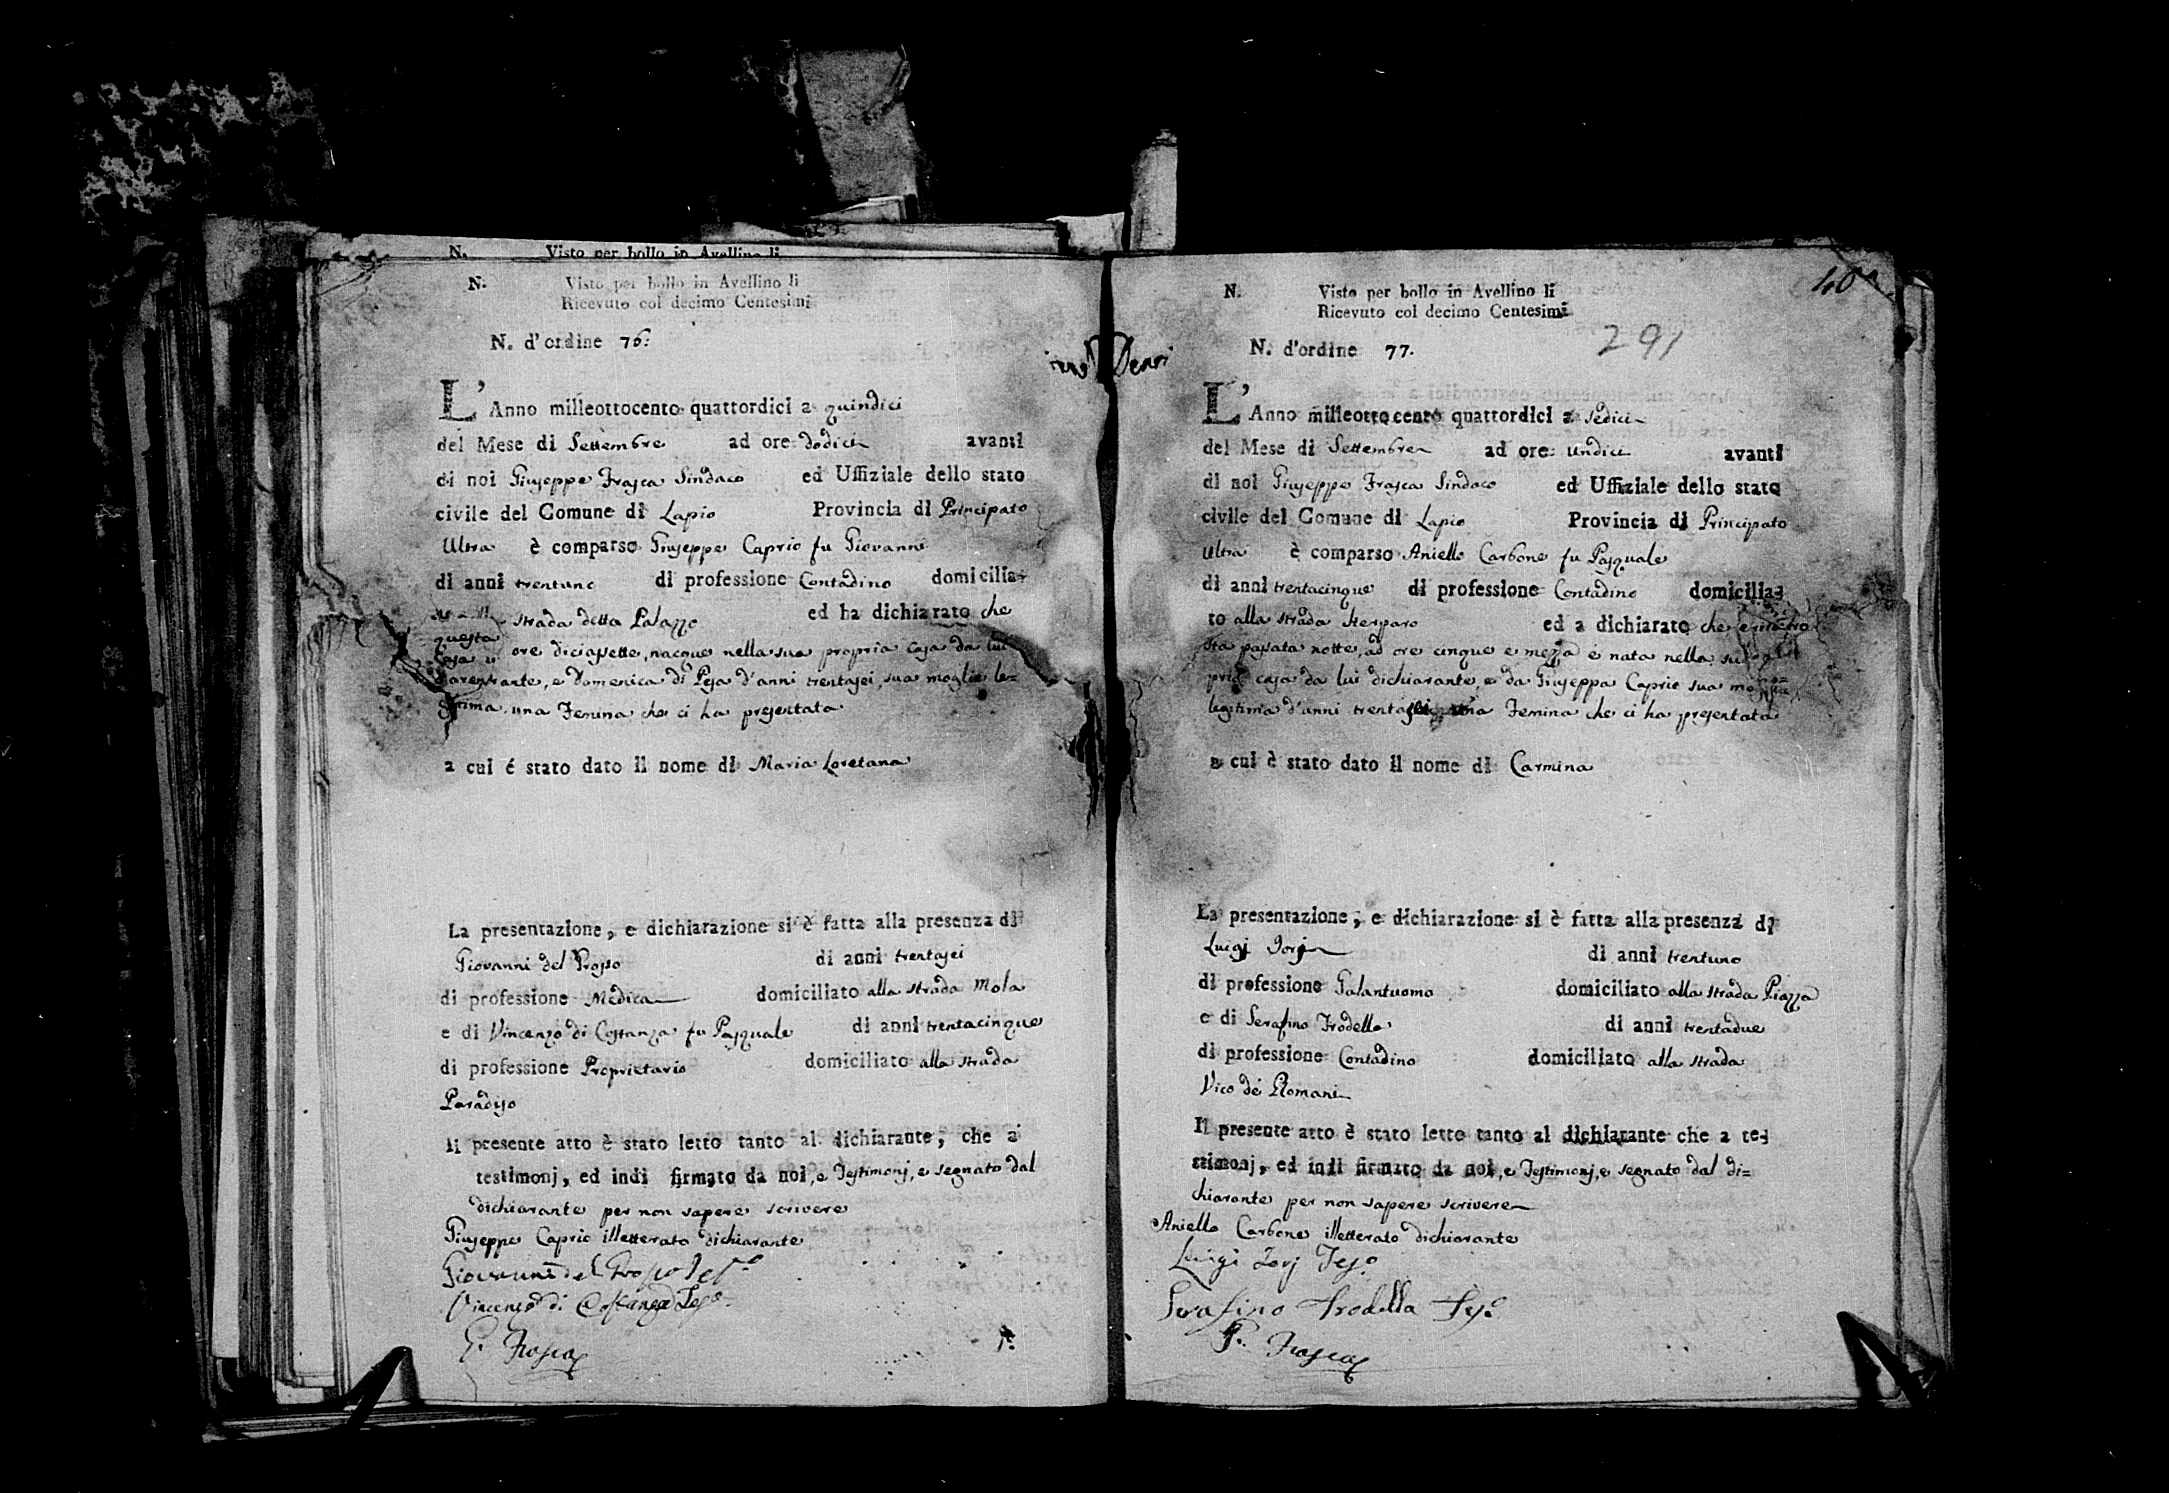 N. Visto per bollo in Avellino li
N. Visto per bollo in Avellino li
Ricevuto col decimo Centesimi
N. d'ordine 76.
L'Anno milleottocento quattordici a quindici
del Mese di Settembre ad ore dodici avanti
di noi Giuseppe Frasca Sindaco ed Uffiziale dello stato
civile del Comune di Lapio Provincia di Principato
Ultra è comparso Giuseppe Caprio fu Giovanni
di anni trentuno di professione Contadino domicilia-
strada detta Palazzo ed ha dichiarato che
questa
ore diciassette, nacque nella sua propria casa da lui
, e Domenica di Pesa d'anni trentasei, sua moglie le=
una Femina che ci ha presentata
a cui é stato dato il nome di Maria Loretana
La presentazione, e dichiarazione si è fatta alla presenza di
Giovanni del Prosso di anni trentasei
di professione Medico domiciliato alla strada Mola
e di Vincenzo di Costanza fu Pasquale di anni trentacinque
di professione Proprietario domiciliato alla strada
Paradiso
Il presente atto è stato letto tanto al dichiarante, che a
testimonj, ed indi firmato da noi, e Testimonj, e segnato dal
dichiarante per non sapere scrivere
Giuseppe Caprio illetterato dichiarante
Giovanni del Prosso Tes.o
Vincenzo di Costanza Tes.o
G. Frasca
40
N. Visto per bollo in Avellino li
Ricevuto col decimo Centesimi
291
N. d'ordine 77.
L'Anno milleottocento quattordici a sedici
del Mese di Settembre ad ore undici avanti
di noi Giuseppe Frasca Sindaco ed Uffiziale dello stato
civile del Comune di Lapio Provincia di Principato
Ultra è comparso Aniello Carbone fu Pasquale
di anni trentacinque di professione Contadino domicilia-
to alla strada Sterparo ed a dichiarato che
sta passata notte, ad ore cinque e mezza è nata nella sua
pria casa da lui dichiarante, e da Giuseppa Caprio sua
legitima d'anni trentasei una Femina che ci ha presentata
a cui è stato dato il nome di Carmina
La presentazione, e dichiarazione si è fatta alla presenza di
Luigi Jorj di anni trentuno
di professione Galantuomo domiciliato alla strada Piazza
e di Serafino Trodella di anni trentadue
di professione Contadino domiciliato alla strada
Vico de' Romani
Il presente atto è stato letto tanto al dichiarante che a te-
stimonj, ed indi firmato da noi, e Testimonj, e segnato dal di=
chiarante per non sapere scrivere
Aniello Carbone illetterato dichiarante
Luigi Jorj Tes.o
Serafino Trodella Tes.o
G. Frasca